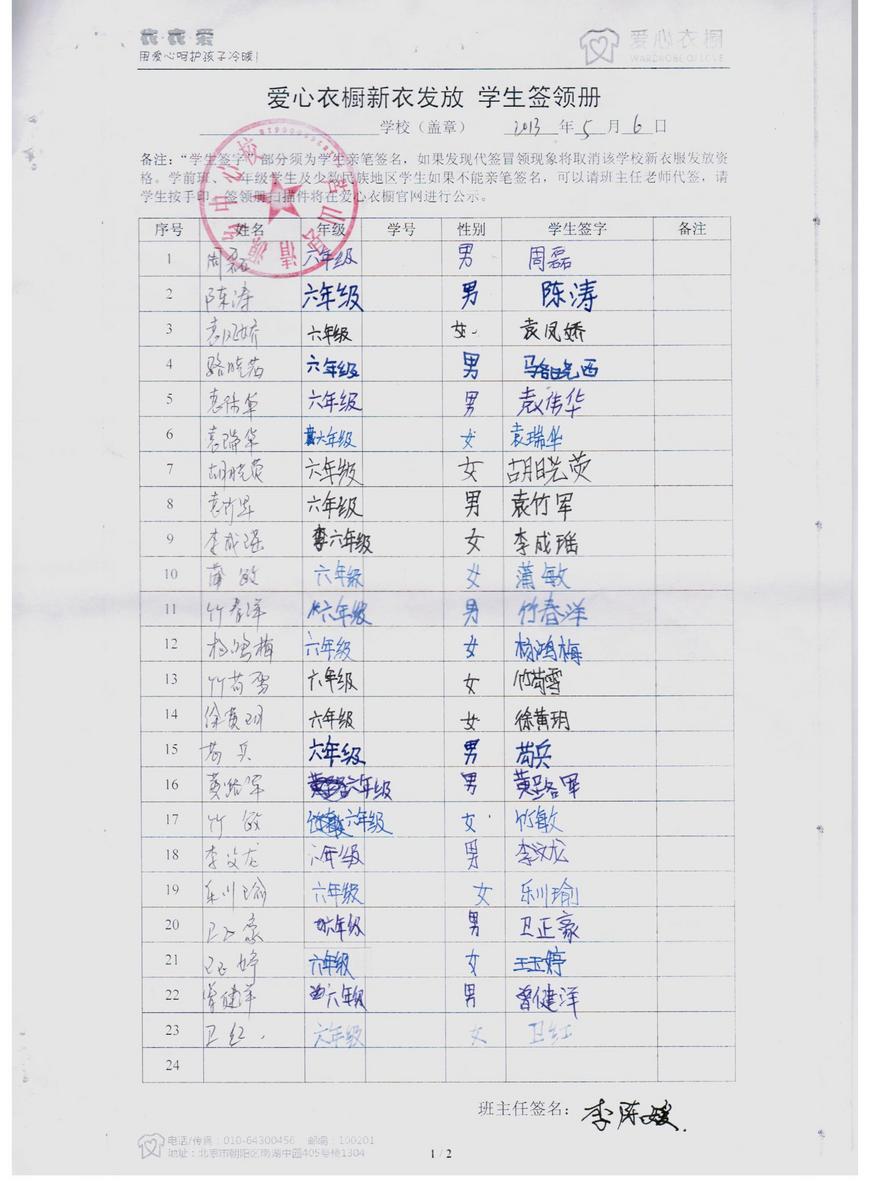 衣·衣·爱
用爱心呵护孩子冷暖!
爱心衣橱
WARDROBE OF LOVE
爱心衣橱新衣发放 学生签领册
学校（盖章） 2013 年 5 月 6 日
备注：“学生签字”部分须为学生亲笔签名，如果发现代签冒领现象将取消该学校新衣服发放资
格。学前班、一年级学生及少数民族地区学生如果不能亲笔签名，可以请班主任老师代签，请
学生按手印。签领册扫描件将在爱心衣橱官网进行公示。
序号 姓名 年级 学号 性别 学生签字 备注
1 周磊 六年级 男 周磊
2 陈涛 六年级 男 陈涛
3 袁凤娇 六年级 女 袁凤娇
4 骆晓茜 六年级 男 骆晓西
5 袁伟华 六年级 男 袁伟华
6 袁瑞华 六年级 女 袁瑞华
7 胡晓荧 六年级 女 胡晓荧
8 袁竹军 六年级 男 袁竹军
9 李成瑶 李六年级 女 李成瑶
10 蒲敏 六年级 女 蒲敏
11 竹春洋 六年级 男 竹春洋
12 杨鸿梅 六年级 女 杨鸿梅
13 竹茼雪 六年级 女 竹茼雪
14 徐黄玥 六年级 女 徐黄玥
15 苟兵 六年级 男 苟兵
16 黄路军 六年级 男 黄路军
17 竹敏 六年级 女 竹敏
18 李汶龙 六年级 男 李汶龙
19 乐川瑜 六年级 女 乐川瑜
20 卫正豪 六年级 男 卫正豪
21 王玉婷 六年级 女 王玉婷
22 曾健洋 六年级 男 曾健洋
23 卫红 六年级 女 卫红
24
班主任签名： 李陈媛
电话/传真：010-64300456 邮编：100201
地址：北京市朝阳区南湖中园405号楼1304
1 / 2